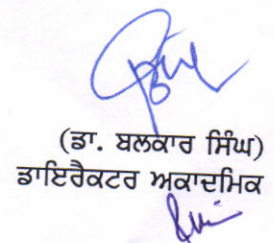 (ਡਾ. ਬਲਕਾਰ ਸਿੰਘ)
ਡਾਇਰੈਕਟਰ ਅਕਾਦਮਿਕ